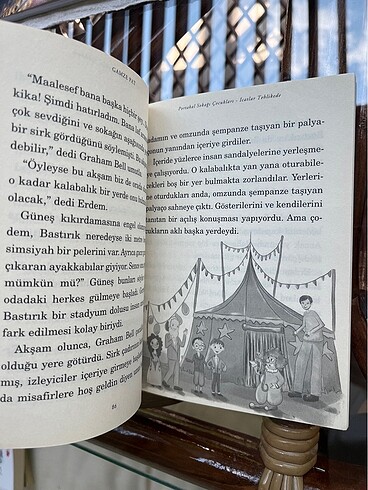 GAMZE
"Maalesef bana başka hiçbir şey
kika! Şimdi hatırladım. Bana
çok sevdiğini ve sokağın aşağısında
bir sirk gördüğünü söylemişti.
debilir," dedi Graham Bell
"Öyleyse bu akşam biz de
o kadar kalabalık bir yerde
olacak," dedi Erdem.
Güneş kıkırdamasına engel
dem, Bastırık neredeyse iki
simsiyah bir pelerini var. Ayrıca
çıkaran ayakkabılar giyiyor. Sence
mümkün mü?" Güneş bunları
odadaki herkes gülmeye başladı.
Bastırık bir stadyum dolusu insan
fark edilmesi kolay biriydi.
Akşam olunca, Graham Bell
olduğu yere götürdü. Sirk
mış, izleyiciler içeriye girmeye
da misafirlere hoş geldin diyen
86
Portakal Sokağı Çocukları - İcatlar Tehlikede
adamın ve omzunda şempanze taşıyan bir palya-
çonun yanından içeriye girdiler.
İçeride yüzlerce insan sandalyelerine yerleşme-
ye çalışıyordu. O kalabalıkta yan yana oturabile-
cekleri boş bir yer bulmakta zorlandılar. Yerleri-
ne oturdukları anda, omzunda şempanze taşıyan
palyaço sahneye çıktı. Gösterilerini ve kendilerini
tanıtan bir açılış konuşması yapıyordu. Ama ço-
cukların aklı başka yerdeydi.